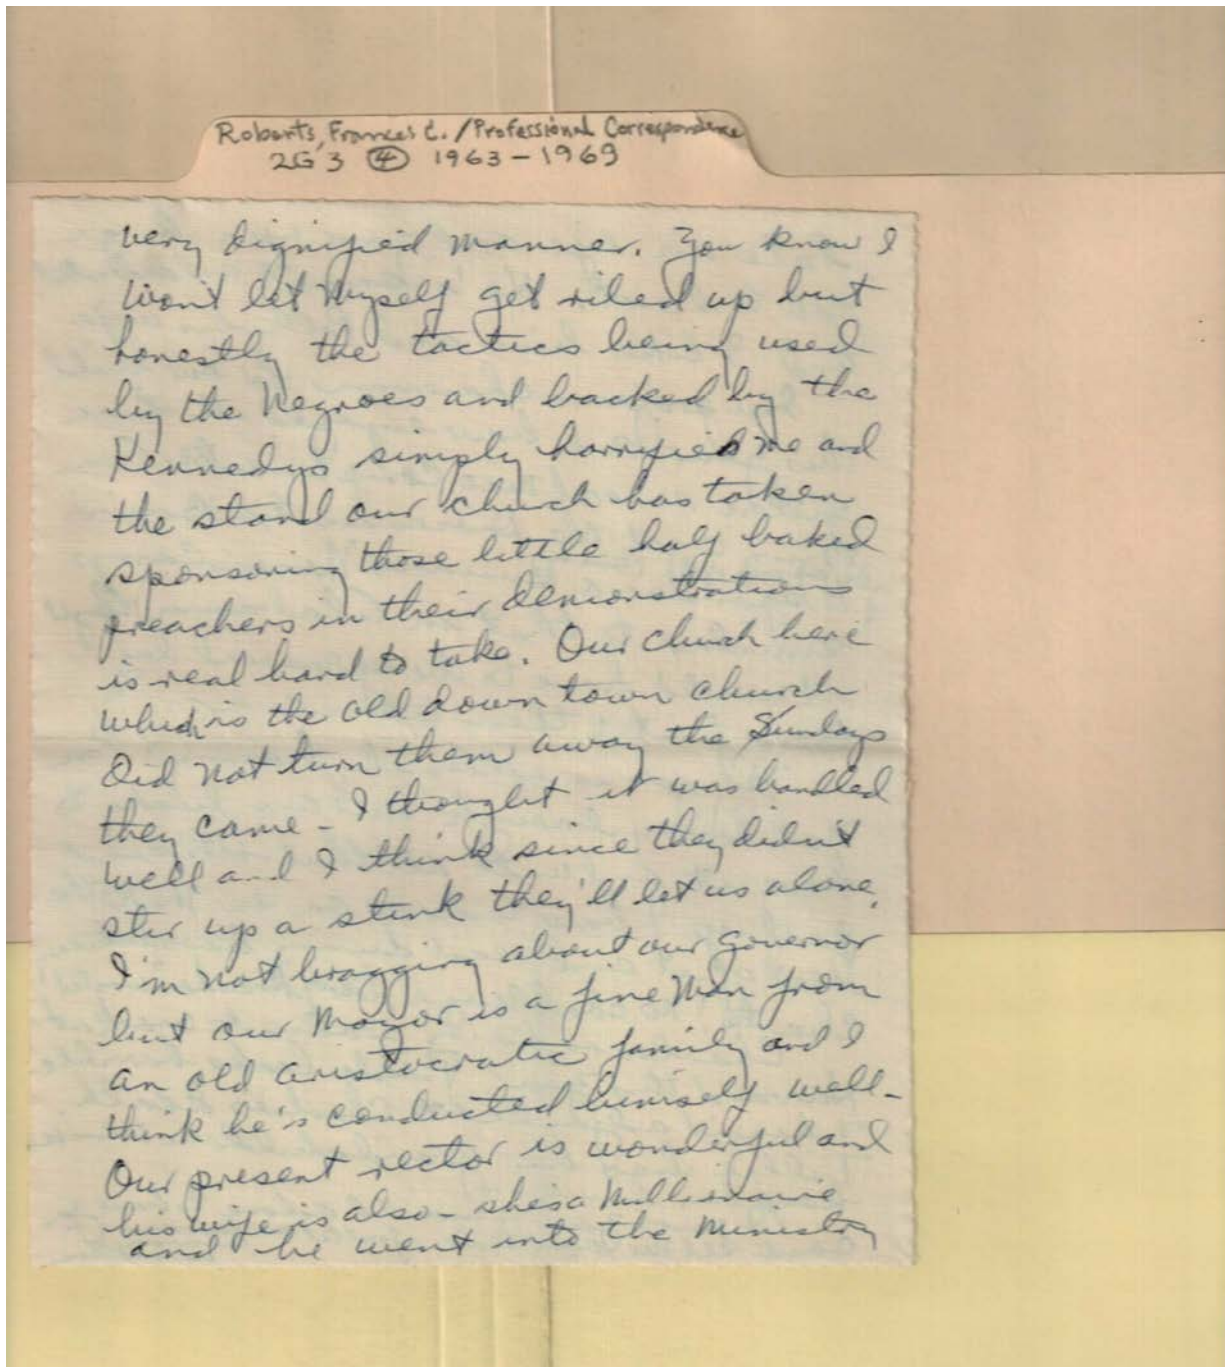 Roberts, Frances C. / Professional Correspondence
2G3 ④ 1963-1969
very dignified manner. You know I
won't let myself get riled up but
honestly the tactics being used
by the Negroes and backed by the
Kennedys simply horrifies me and
the stand our church has taken
sponsoring those little half baked
preachers in their demonstrations
is real hard to take. Our church here
which is the old down town church
Did not turn them away the Sundays
they came - I thought it was handled
well and I think since they didn't
stir up a stink they'll let us alone.
I'm not bragging about our governor
but our Mayor is a fine Man from
an old aristocratic family and I
think he's conducted himself well -
Our present rector is wonderful and
his wife is also - she's a Millionaire
and he went into the Ministry